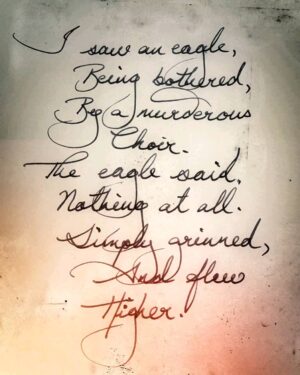 I saw an eagle,
Being bothered,
By a murderous
Choir.
The eagle said,
Nothing at all.
Simply grinned,
And flew
Higher.